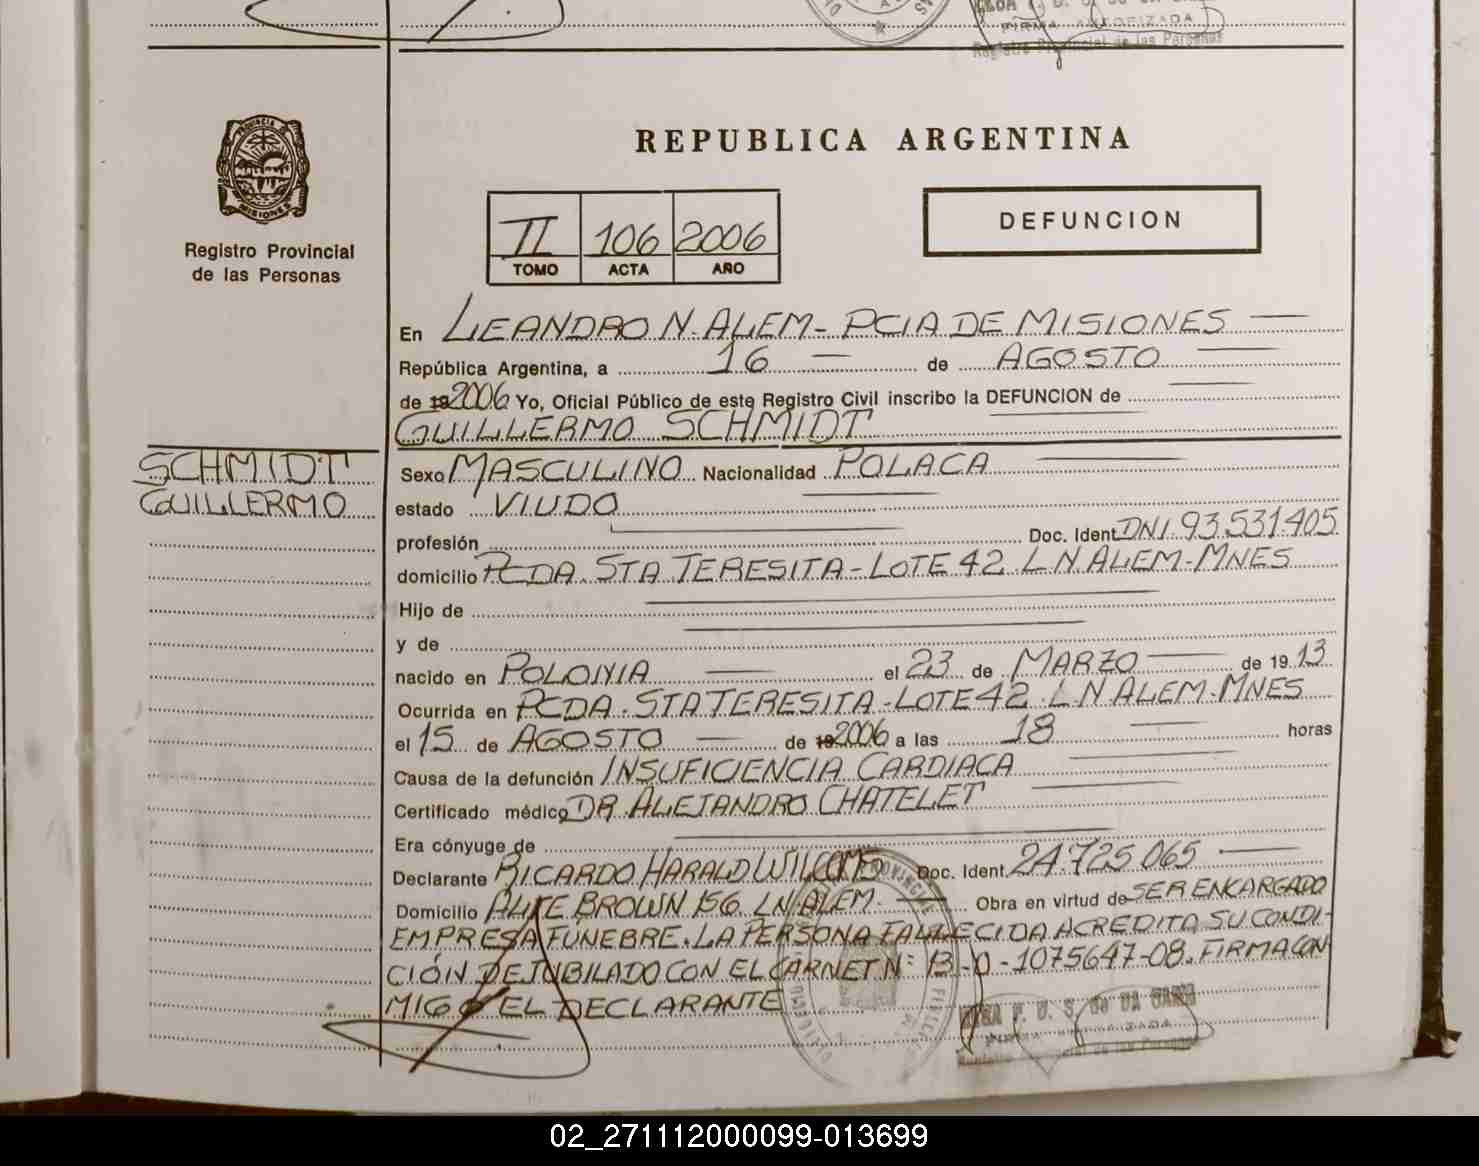 FIRMA AUTORIZADA
Registro Provincial de las Personas
PROVINCIA DE
MISIONES
Registro Provincial
de las Personas
REPUBLICA ARGENTINA
II 106 2006
TOMO ACTA AÑO
DEFUNCION
En LEANDRO N. ALEM - PCIA DE MISIONES
República Argentina, a 16 de AGOSTO
de 192006 Yo, Oficial Público de este Registro Civil inscribo la DEFUNCION de
GUILLERMO SCHMIDT
SCHMIDT
GUILLERMO
Sexo MASCULINO Nacionalidad POLACA
estado VIUDO
profesión Doc. Ident DNI. 93.531.405
domicilio PCDA. STA TERESITA - LOTE 42 L N. ALEM - MNES
Hijo de
y de
nacido en POLONIA el 23 de MARZO de 19 13
Ocurrida en PCDA. STA TERESITA - LOTE 42 L N ALEM - MNES
el 15 de AGOSTO de 192006 a las 18 horas
Causa de la defunción INSUFICIENCIA CARDIACA
Certificado médico DR. ALEJANDRO CHATELET
Era cónyuge de
Declarante RICARDO HARALD Doc. Ident. 24.725.065
Domicilio ALTE BROWN 156 LN ALEM. Obra en virtud de SER ENCARGADO
EMPRESA FÚNEBRE. LA PERSONA FALLECIDA ACREDITA SU CONDI-
CIÓN DE JUBILADO CON EL CARNET N: 13-0-1075647-08. FIRMA CON
MIGO EL DECLARANTE
02_271112000099-013699